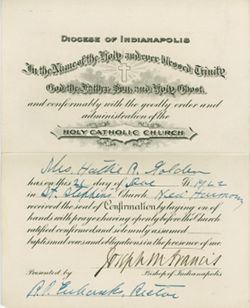 DIOCESE OF INDIANAPOLIS
In the Name of the Holy and ever blessed Trinity
God the Father, Son, and Holy Ghost,
and conformably with the goodly order and
administration of the
HOLY CATHOLIC CHURCH
Mrs. Hattie R. Golden
has on this 24 day of June A.D. 1902
in St. Stephens Church, New Harmony
received the seal of Confirmation by laying on of
hands with prayer having openly before the Church
ratified confirmed and solemnly assumed
baptismal vows and obligations in the presence of me
Joseph M Francis
Presented by Bishop of Indianapolis
Rector